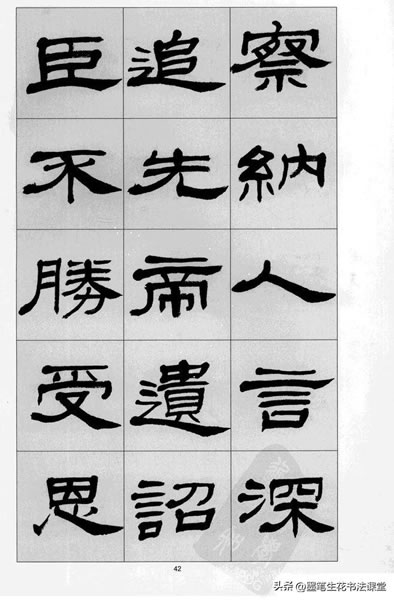 察納人言深
追先帝遺詔
臣不勝受恩
42
头条 @墨笔生花书法课堂